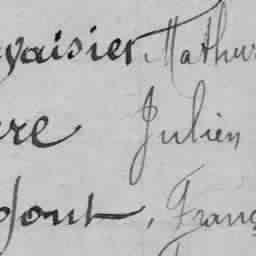 vaisier Mathur
re Julien
font, Franç